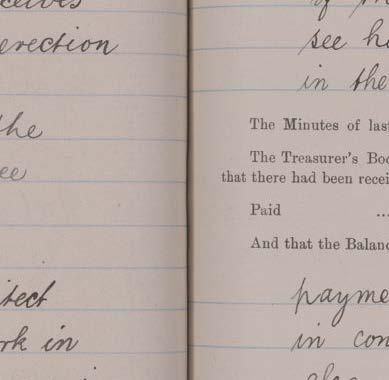 erection
the
ee
itect
rk in
see h
in the
The Minutes of last
The Treasurer's Boo
that there had been recei
Paid ...
And that the Balanc
payme
in con